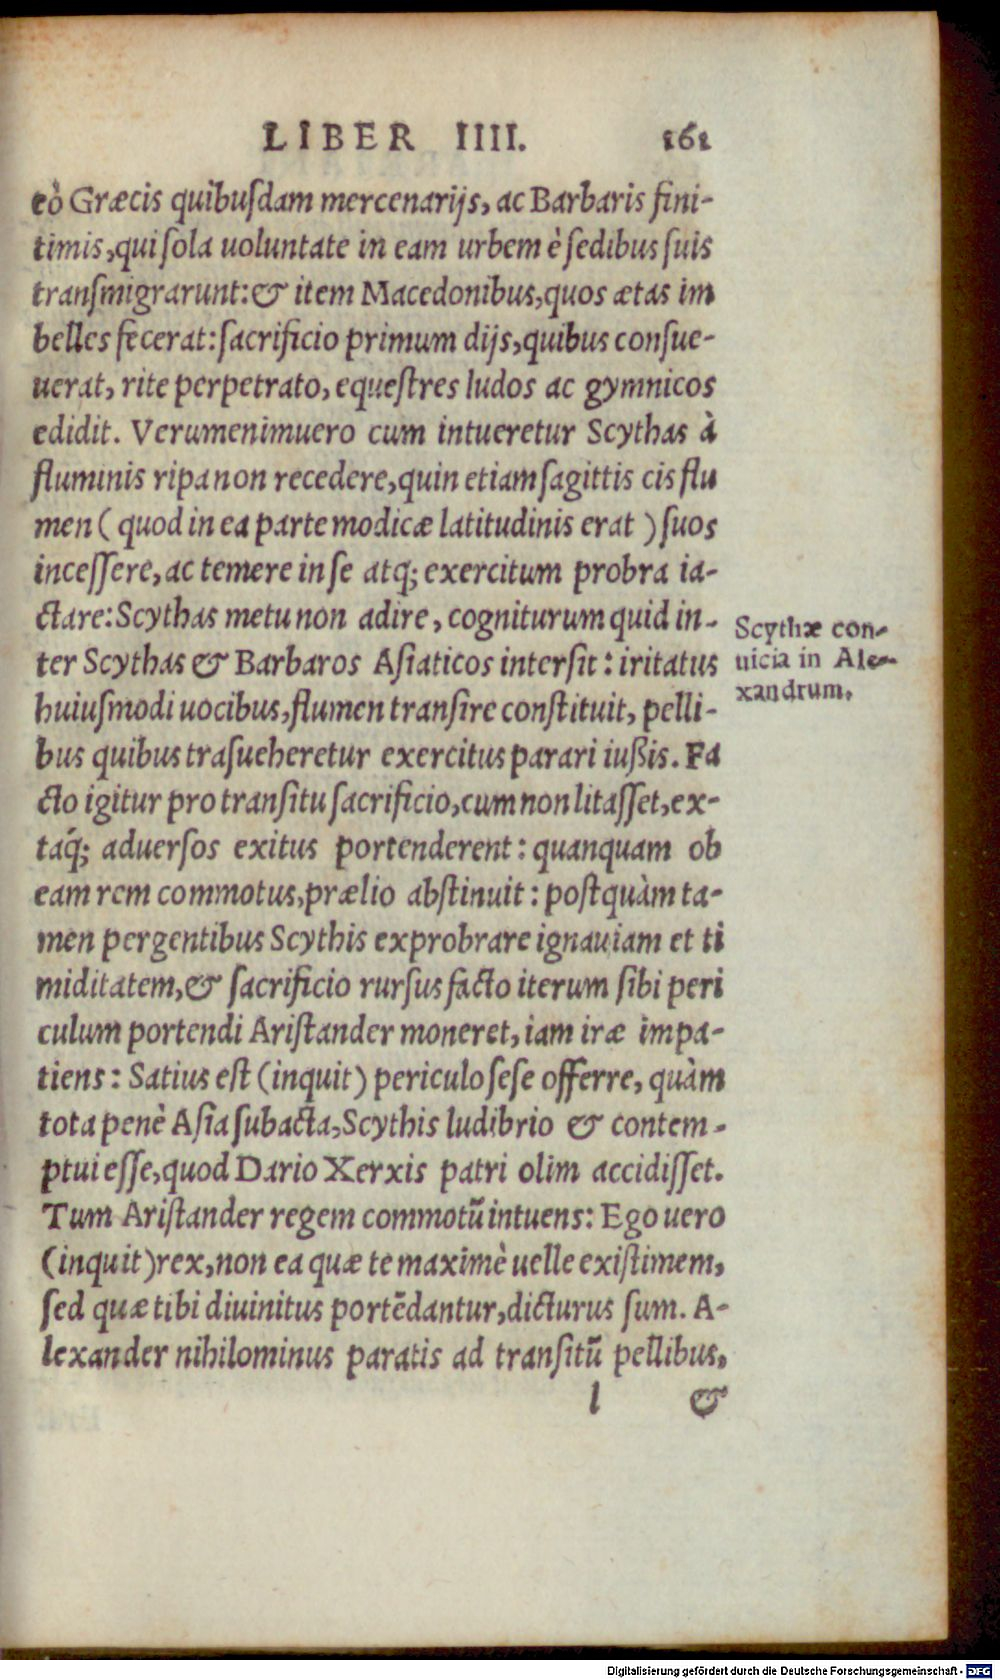 LIBER IIII. 161
eò Græcis quibuſdam mercenarijs, ac Barbaris fini-
timis, qui ſola uoluntate in eam urbem è ſedibus ſuis
tranſmigrarunt: & item Macedonibus, quos ætas im
belles fecerat: ſacrificio primum dijs, quibus conſue-
uerat, rite perpetrato, equeſtres ludos ac gymnicos
edidit. Verumenimuero cum intueretur Scythas à
fluminis ripa non recedere, quin etiam ſagittis cis flu
men ( quod in ea parte modicæ latitudinis erat ) ſuos
inceſſere, ac temere in ſe atq; exercitum probra ia-
ctare: Scythas metu non adire, cogniturum quid in-
ter Scythas & Barbaros Aſiaticos interſit: iritatus
huiuſmodi uocibus, flumen tranſire conſtituit, pelli-
bus quibus traſueheretur exercitus parari iußis. Fa
cto igitur pro tranſitu ſacrificio, cum non litaſſet, ex-
taq́; aduerſos exitus portenderent: quanquam ob
eam rem commotus, prælio abſtinuit: poſtquàm ta-
men pergentibus Scythis exprobrare ignauiam et ti
miditatem, & ſacrificio rurſus facto iterum ſibi peri
culum portendi Ariſtander moneret, iam iræ impa-
tiens: Satius eſt (inquit) periculo ſeſe offerre, quàm
tota penè Aſia ſubacta, Scythis ludibrio & contem-
ptui eſſe, quod Dario Xerxis patri olim accidiſſet.
Tum Ariſtander regem commotū intuens: Ego uero
(inquit) rex, non ea quæ te maximè uelle exiſtimem,
ſed quæ tibi diuinitus portēdantur, dicturus ſum. A-
lexander nihilominus paratis ad tranſitū pellibus,
l &
Scythæ con-
uicia in Ale-
xandrum.
Digitalisierung gefördert durch die Deutsche Forschungsgemeinschaft - DFG